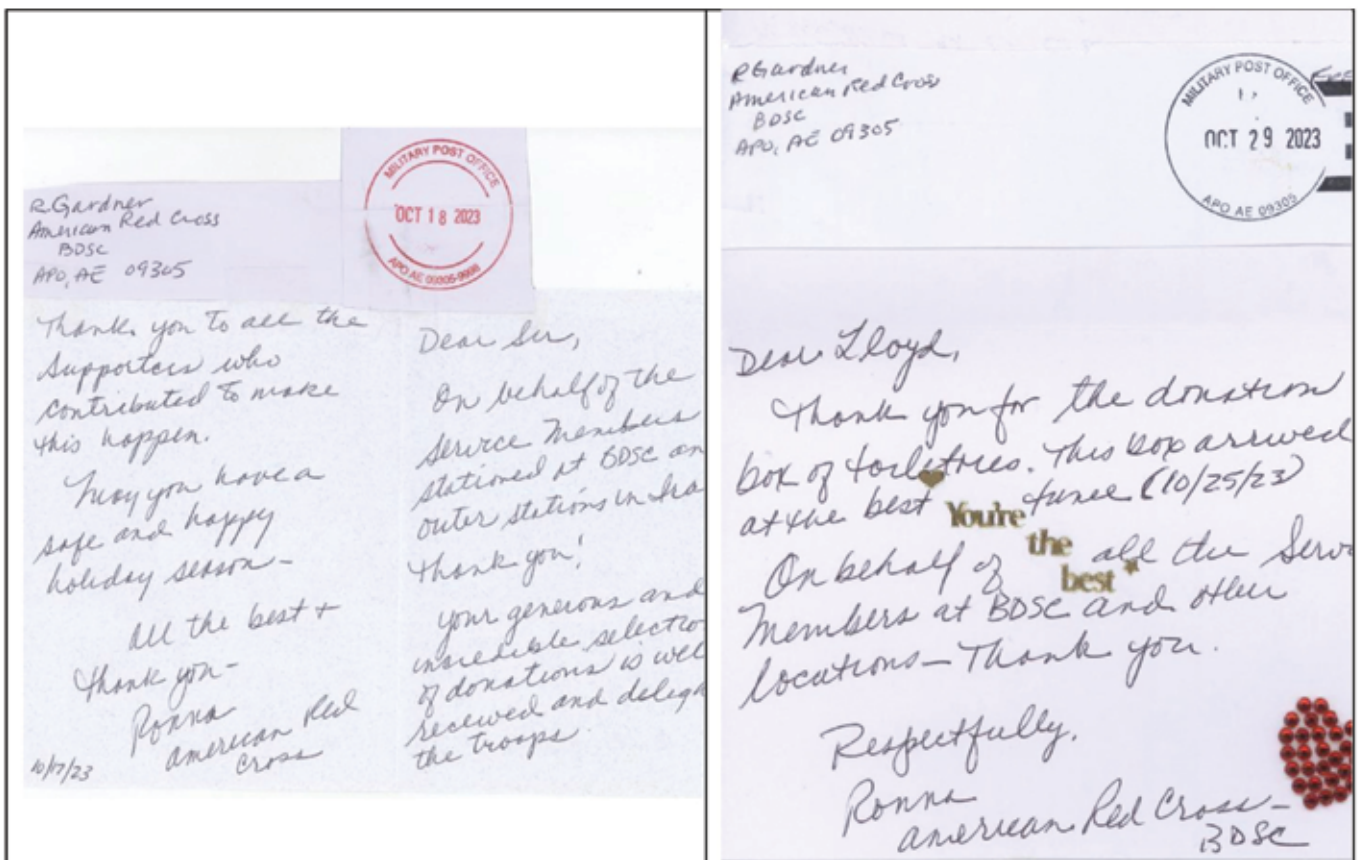 R. Gardner
American Red Cross
BDSC
APO, AE 09305
MILITARY POST OFFICE
OCT 18 2023
APO AE 09305-9998
Thank you to all the
supporters who
contributed to make
this happen.
May you have a
safe and happy
holiday season-
All the best +
thank you-
Ronna
American Red
Cross
10/17/23
Dear Sir,
On behalf of the
Service Members
stationed at BDSC an
outer stations in Ira
thank you!
Your generous and
incredible selectio
of donations is wel
received and deligh
the troops.
R Gardner
American Red Cross
BDSC
APO, AE 09305
MILITARY POST OFFICE
OCT 29 2023
APO AE 09305
Dear Lloyd,
Thank you for the donation
box of toiletries. This box arrived
at the best time (10/25/23)
You're
the
best
On behalf of all the Serv
Members at BDSC and other
locations - Thank you.
Respectfully,
Ronna
American Red Cross -
BDSC